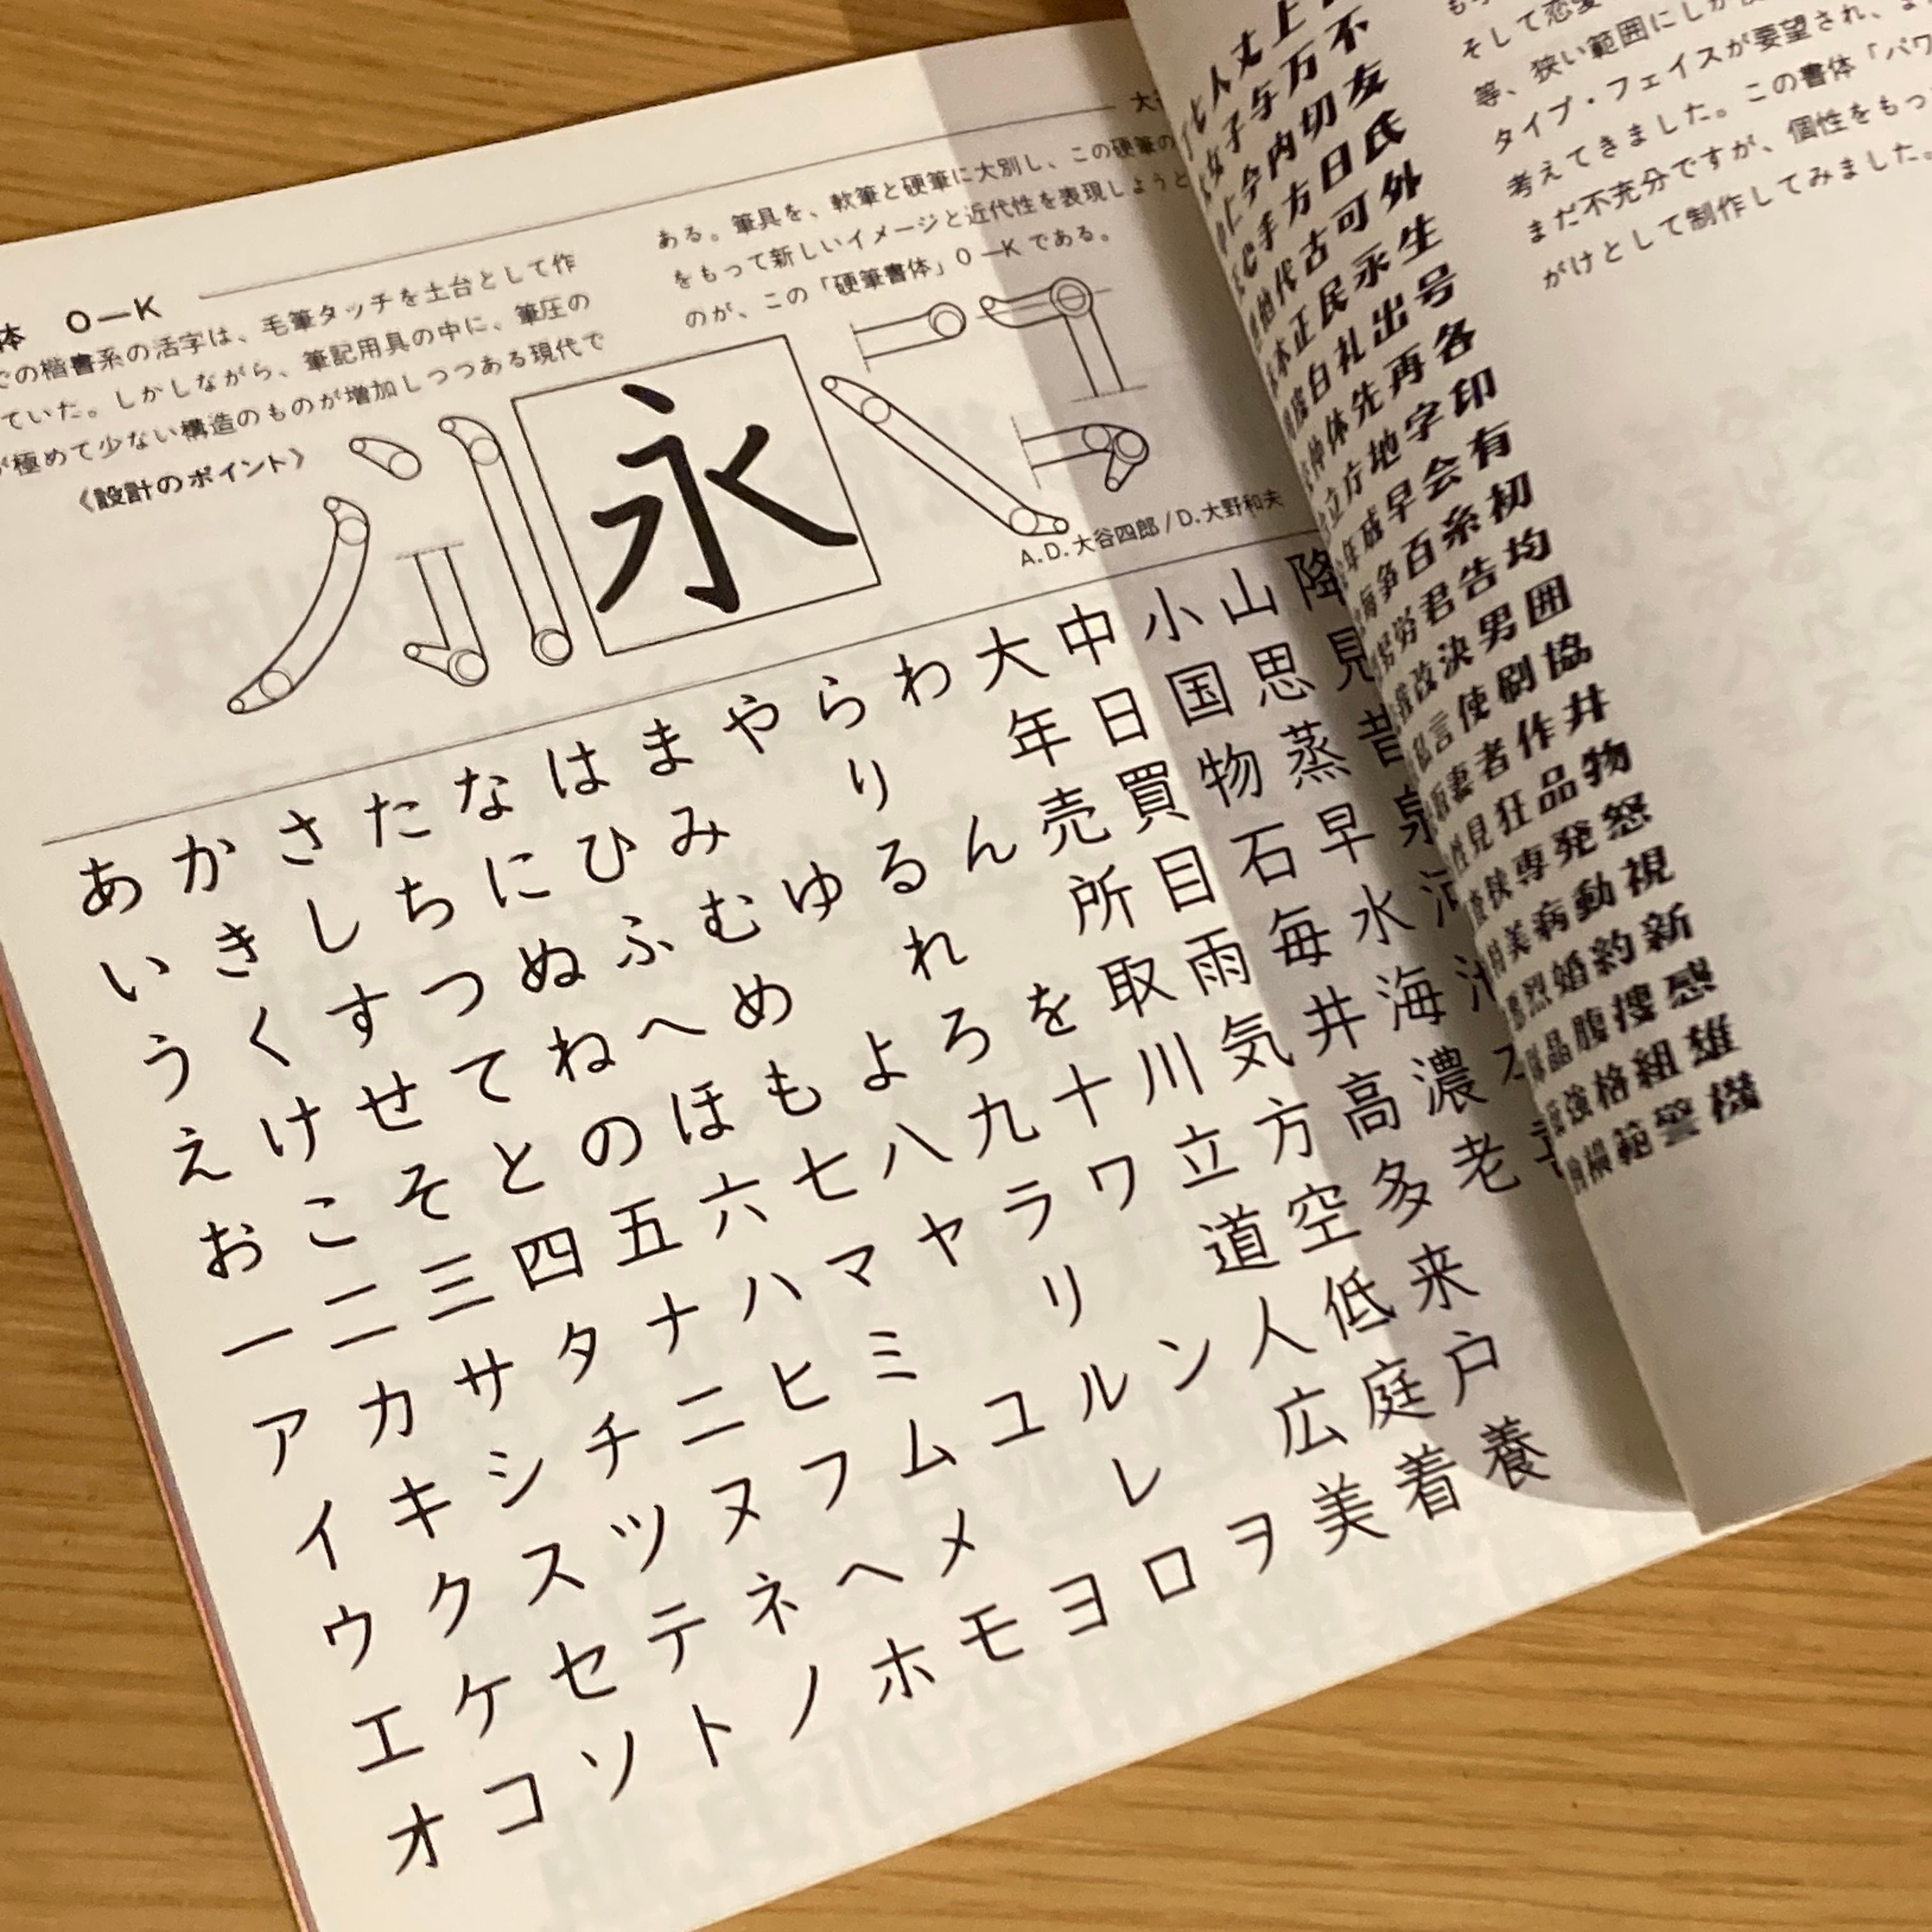 体 O—K
での楷書系の活字は、毛筆タッチを土台として作
ていた。しかしながら、筆記用具の中に、筆圧の
が極めて少ない構造のものが増加しつつある現代で
ある。筆具を、軟筆と硬筆に大別し、この硬筆の
をもって新しいイメージと近代性を表現しようと
のが、この「硬筆書体」O—Kである。
《設計のポイント》
永
A.D.大谷四郎/D.大野和夫
あかさたなはまやらわ大中小山降
いきしちにひみ り 年日国思見
うくすつぬふむゆるん売買物蒸昔
えけせてねへめ れ 所目石早泉
おこそとのほもよろを取雨毎水
一二三四五六七八九十川気井海
アカサタナハマヤラワ立方高濃
イキシチニヒミ リ 道空多老
ウクスツヌフムユルン人低来
エケセテネヘメ レ 広庭戸
オコソトノホモヨロヲ美着養
人丈上
女子与万不
今内切友
手方日氏
代古可外
正民永生
白礼出号
体先再各
地字印
早会有
百糸初
君告均
決男囲
使刷協
者作井
狂品物
専発怒
病動視
婚約新
腹捜感
格組雄
範警機
そして恋愛
等、狭い範囲にしか
タイプ・フェイスが要望され、
考えてきました。この書体「パワ
まだ不充分ですが、個性をもっ
がけとして制作してみました。